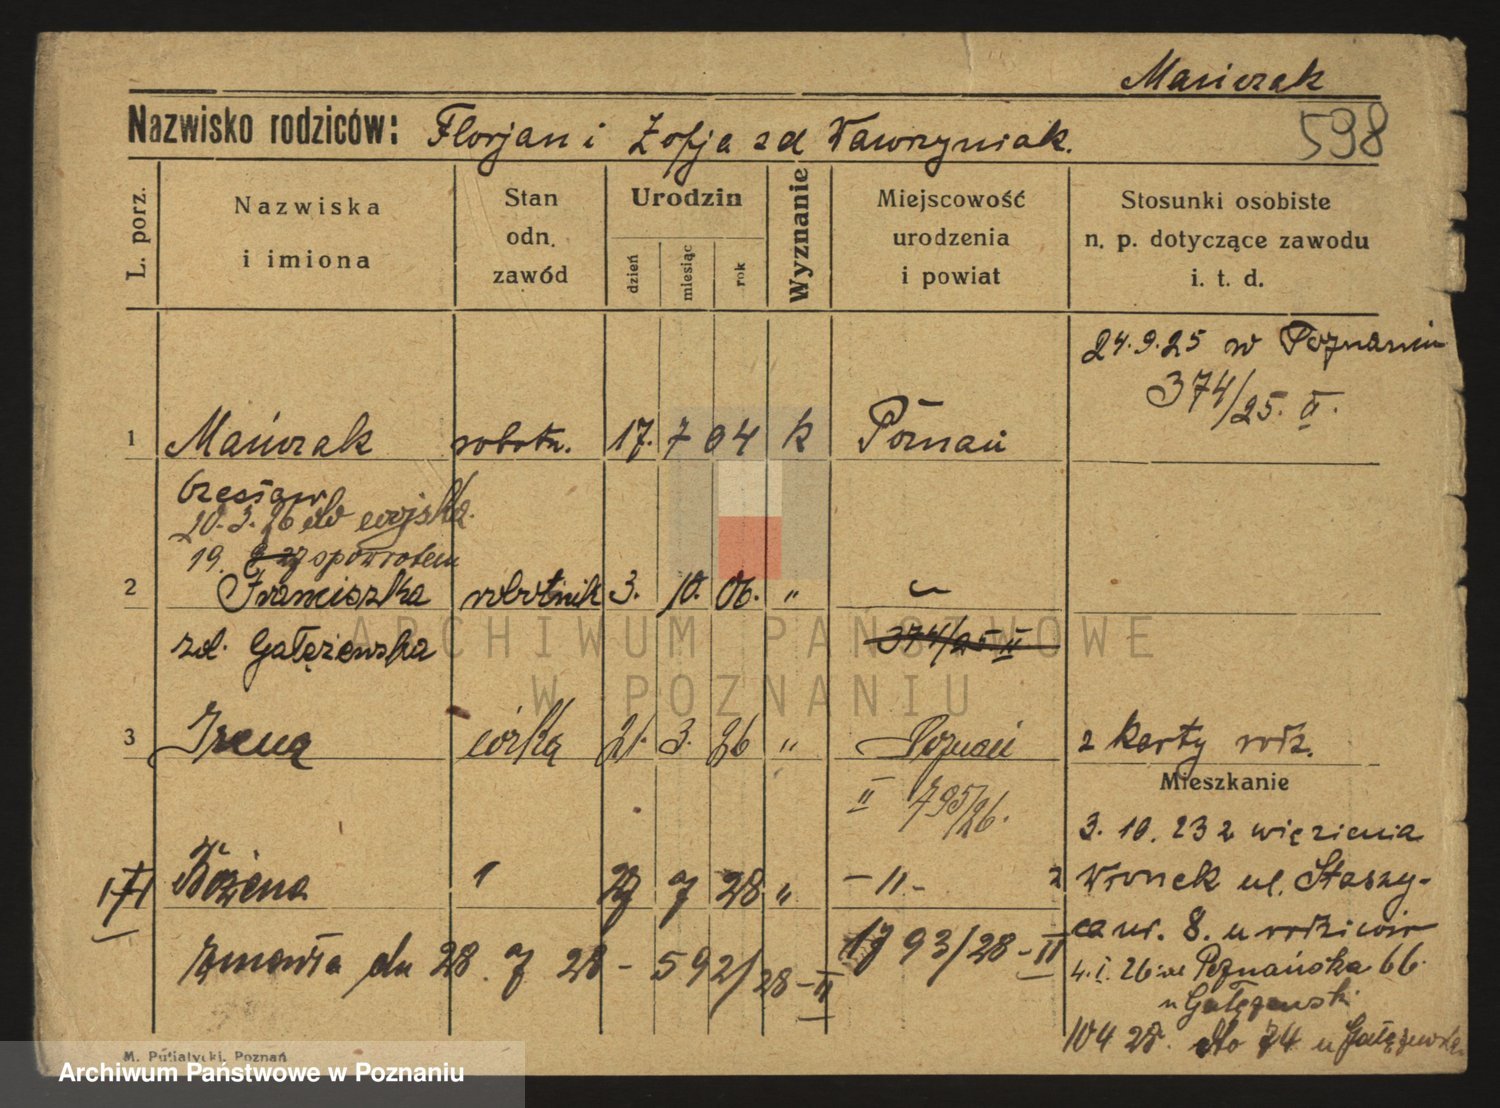 Mańczak
Nazwisko rodziców: Florjan i Zofja zd Wawrzyniak.
598
L. porz.
Nazwiska
i imiona
Stan
odn.
zawód
Urodzin
dzień
miesiąc
rok
Wyznanie
Miejscowość
urodzenia
i powiat
Stosunki osobiste
n. p. dotyczące zawodu
i. t. d.
24.9.25 w Poznaniu
374/25. II.
1 Mańczak robotn. 17. 7 04 k Poznań
Czesław
20.3.26 do wojska.
19. spowrotem
2 Franciszka robotnik 3. 10. 06. "
zd. Gałężewska 374/25 II
ARCHIWUM PAŃSTWOWE
W POZNANIU
3 Irena córka 21. 3. 26 " Poznań 2 karty rodz.
II 795/26.
Mieszkanie
3. 10. 23 z więzienia
Bożena 27 7 28 " - 11 - Wronek ul. Staszy-
ca nr. 8. u rodziców
zmarła dn 28. 7 28 - 592/28 - II 1793/28 - II
4. I. 26 ul Poznańska 66.
u Gałężewski
10 4 28. dto 74 u Gałężewsk
M. Putiatycki, Poznań
Archiwum Państwowe w Poznaniu